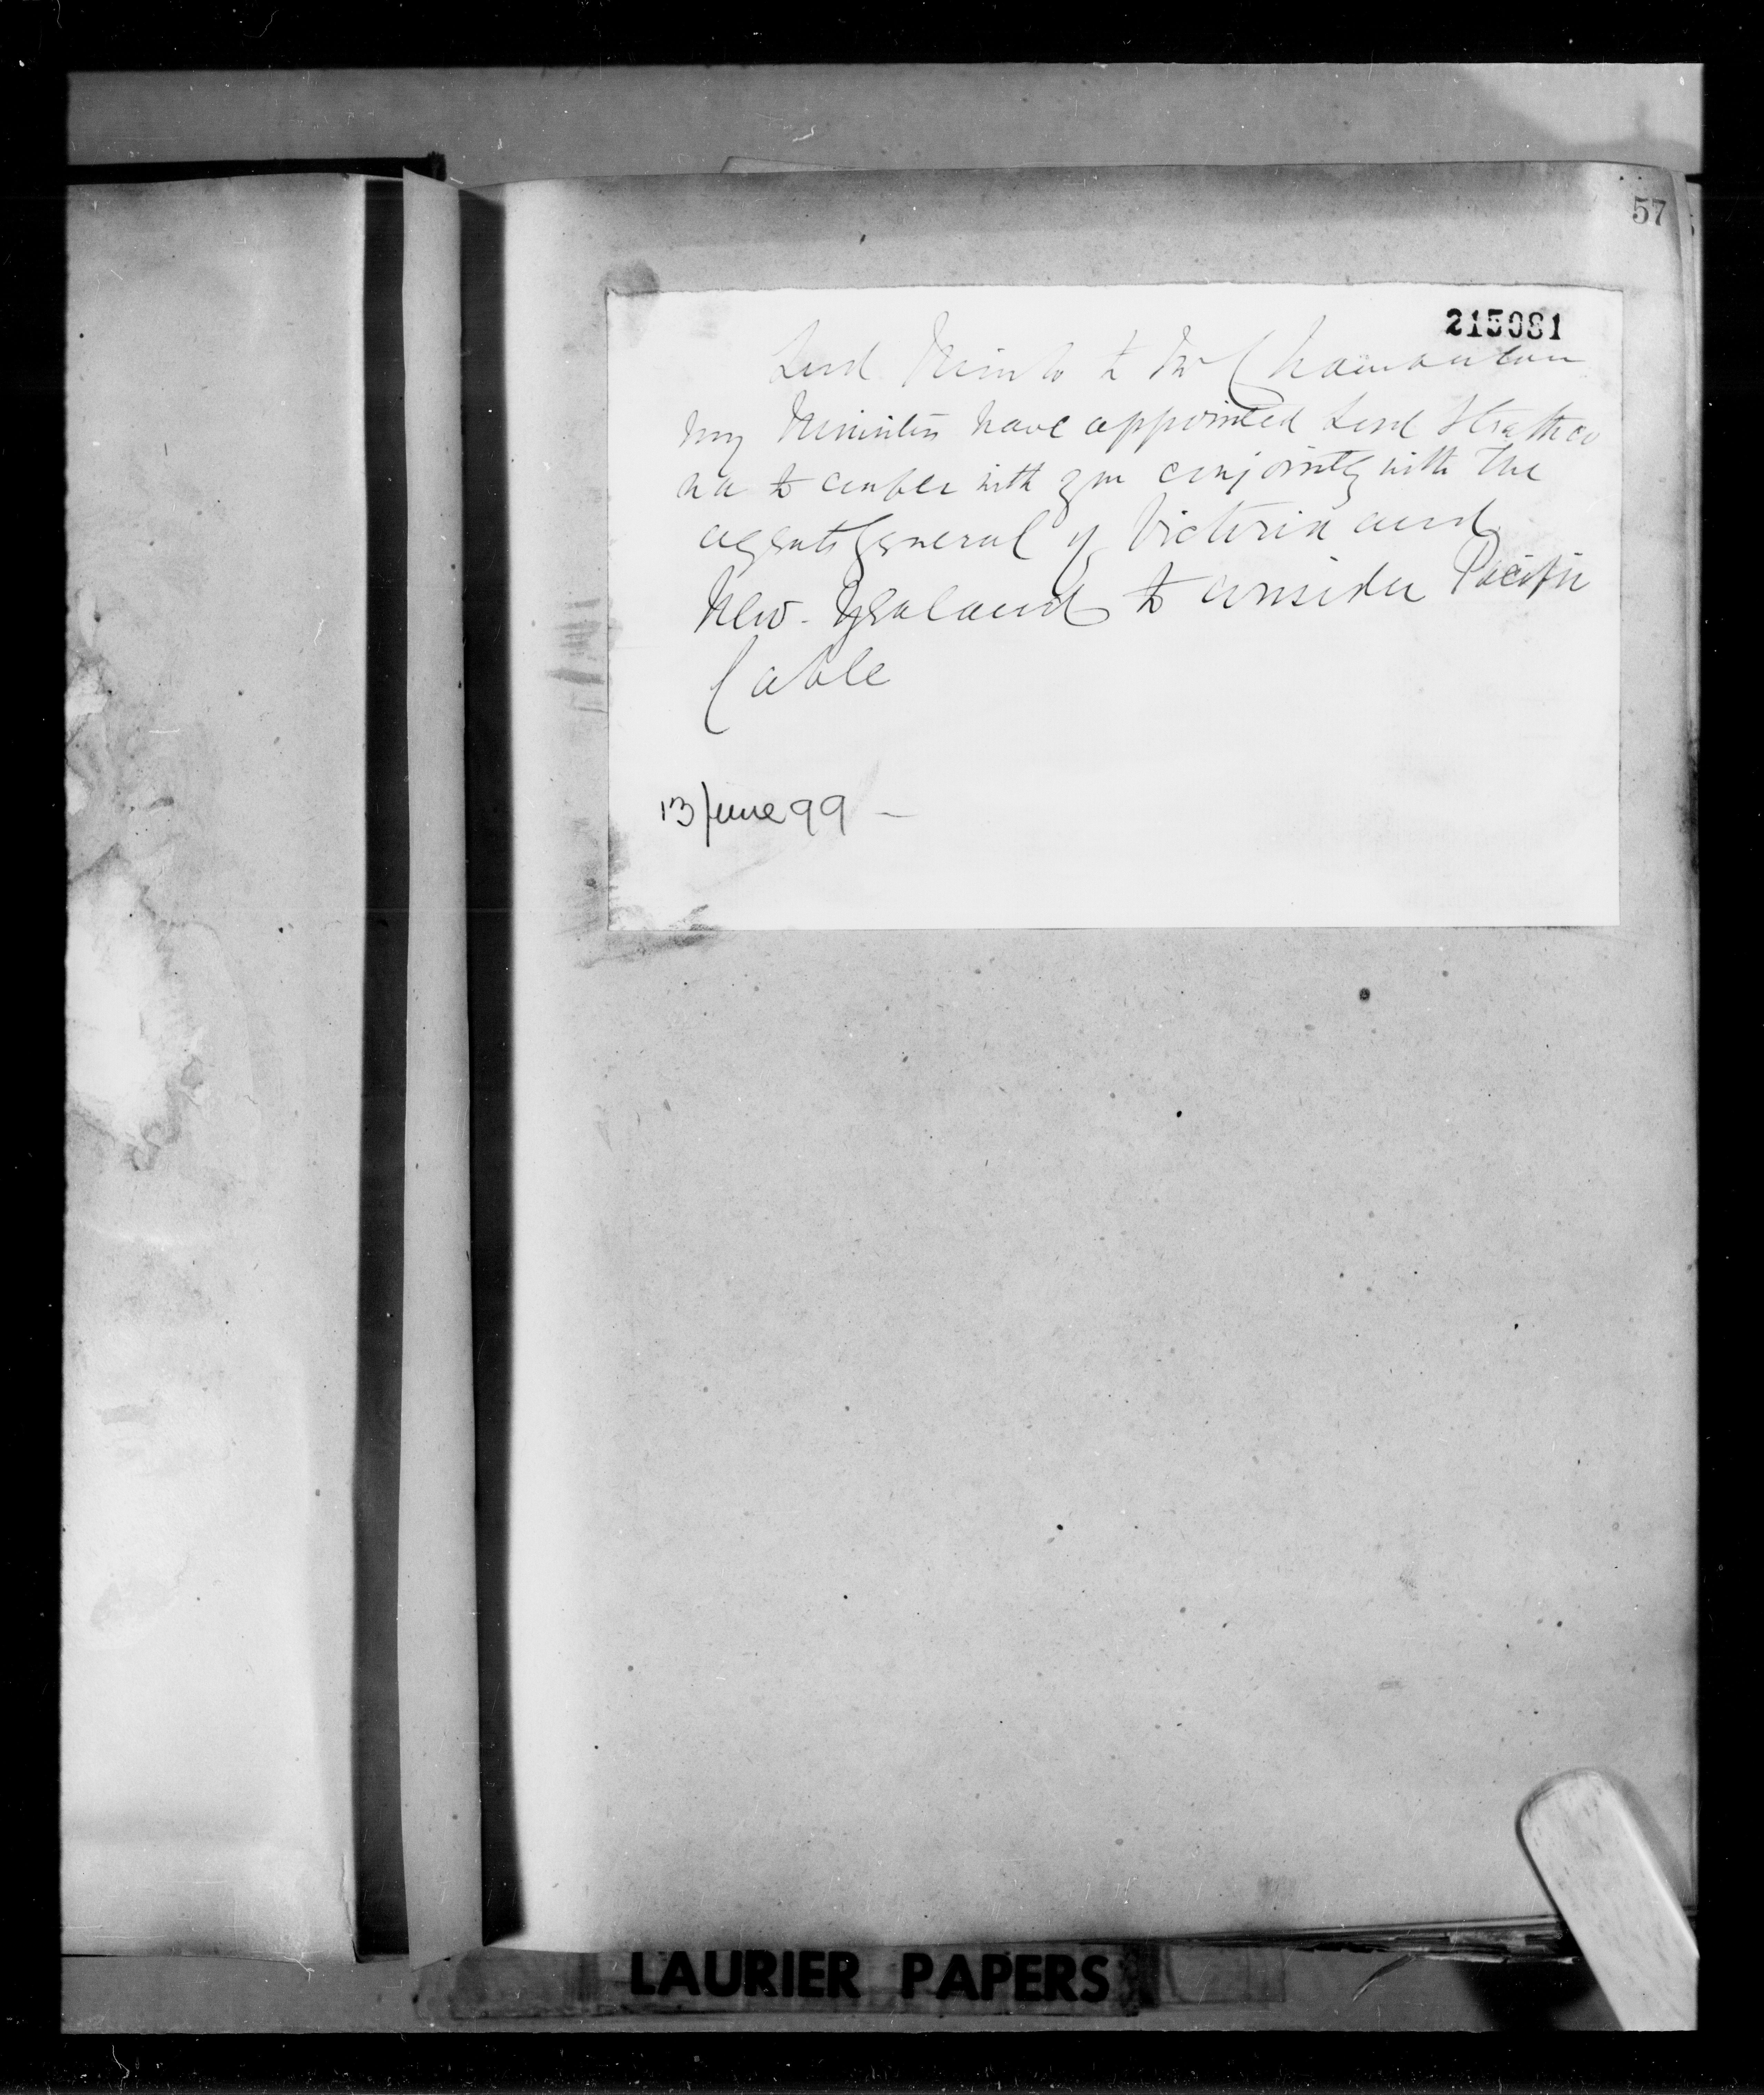 57
215081
Lord Minto to Mr Chamberlain
my Ministers have appointed Lord Strathco
na to confer with you conjointly with the
agents general of Victoria and
New-Zealand to consider Pacific
Cable
13 June 99 -
LAURIER PAPERS